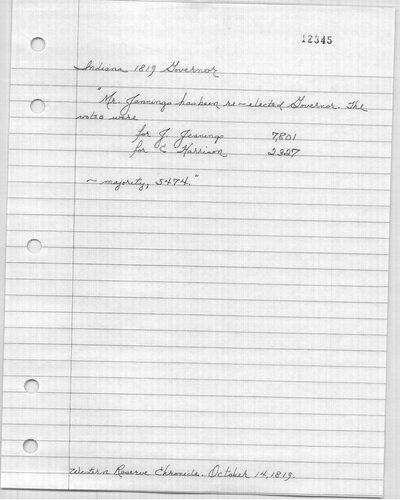 12345
Indiana 1819 Governor
"Mr. Jennings has been re-elected Governor. The
votes were
for J. Jennings 7,801
for C Harrison 2327
- majority, 5474."
Western Reserve Chronicle. October 14, 1819.